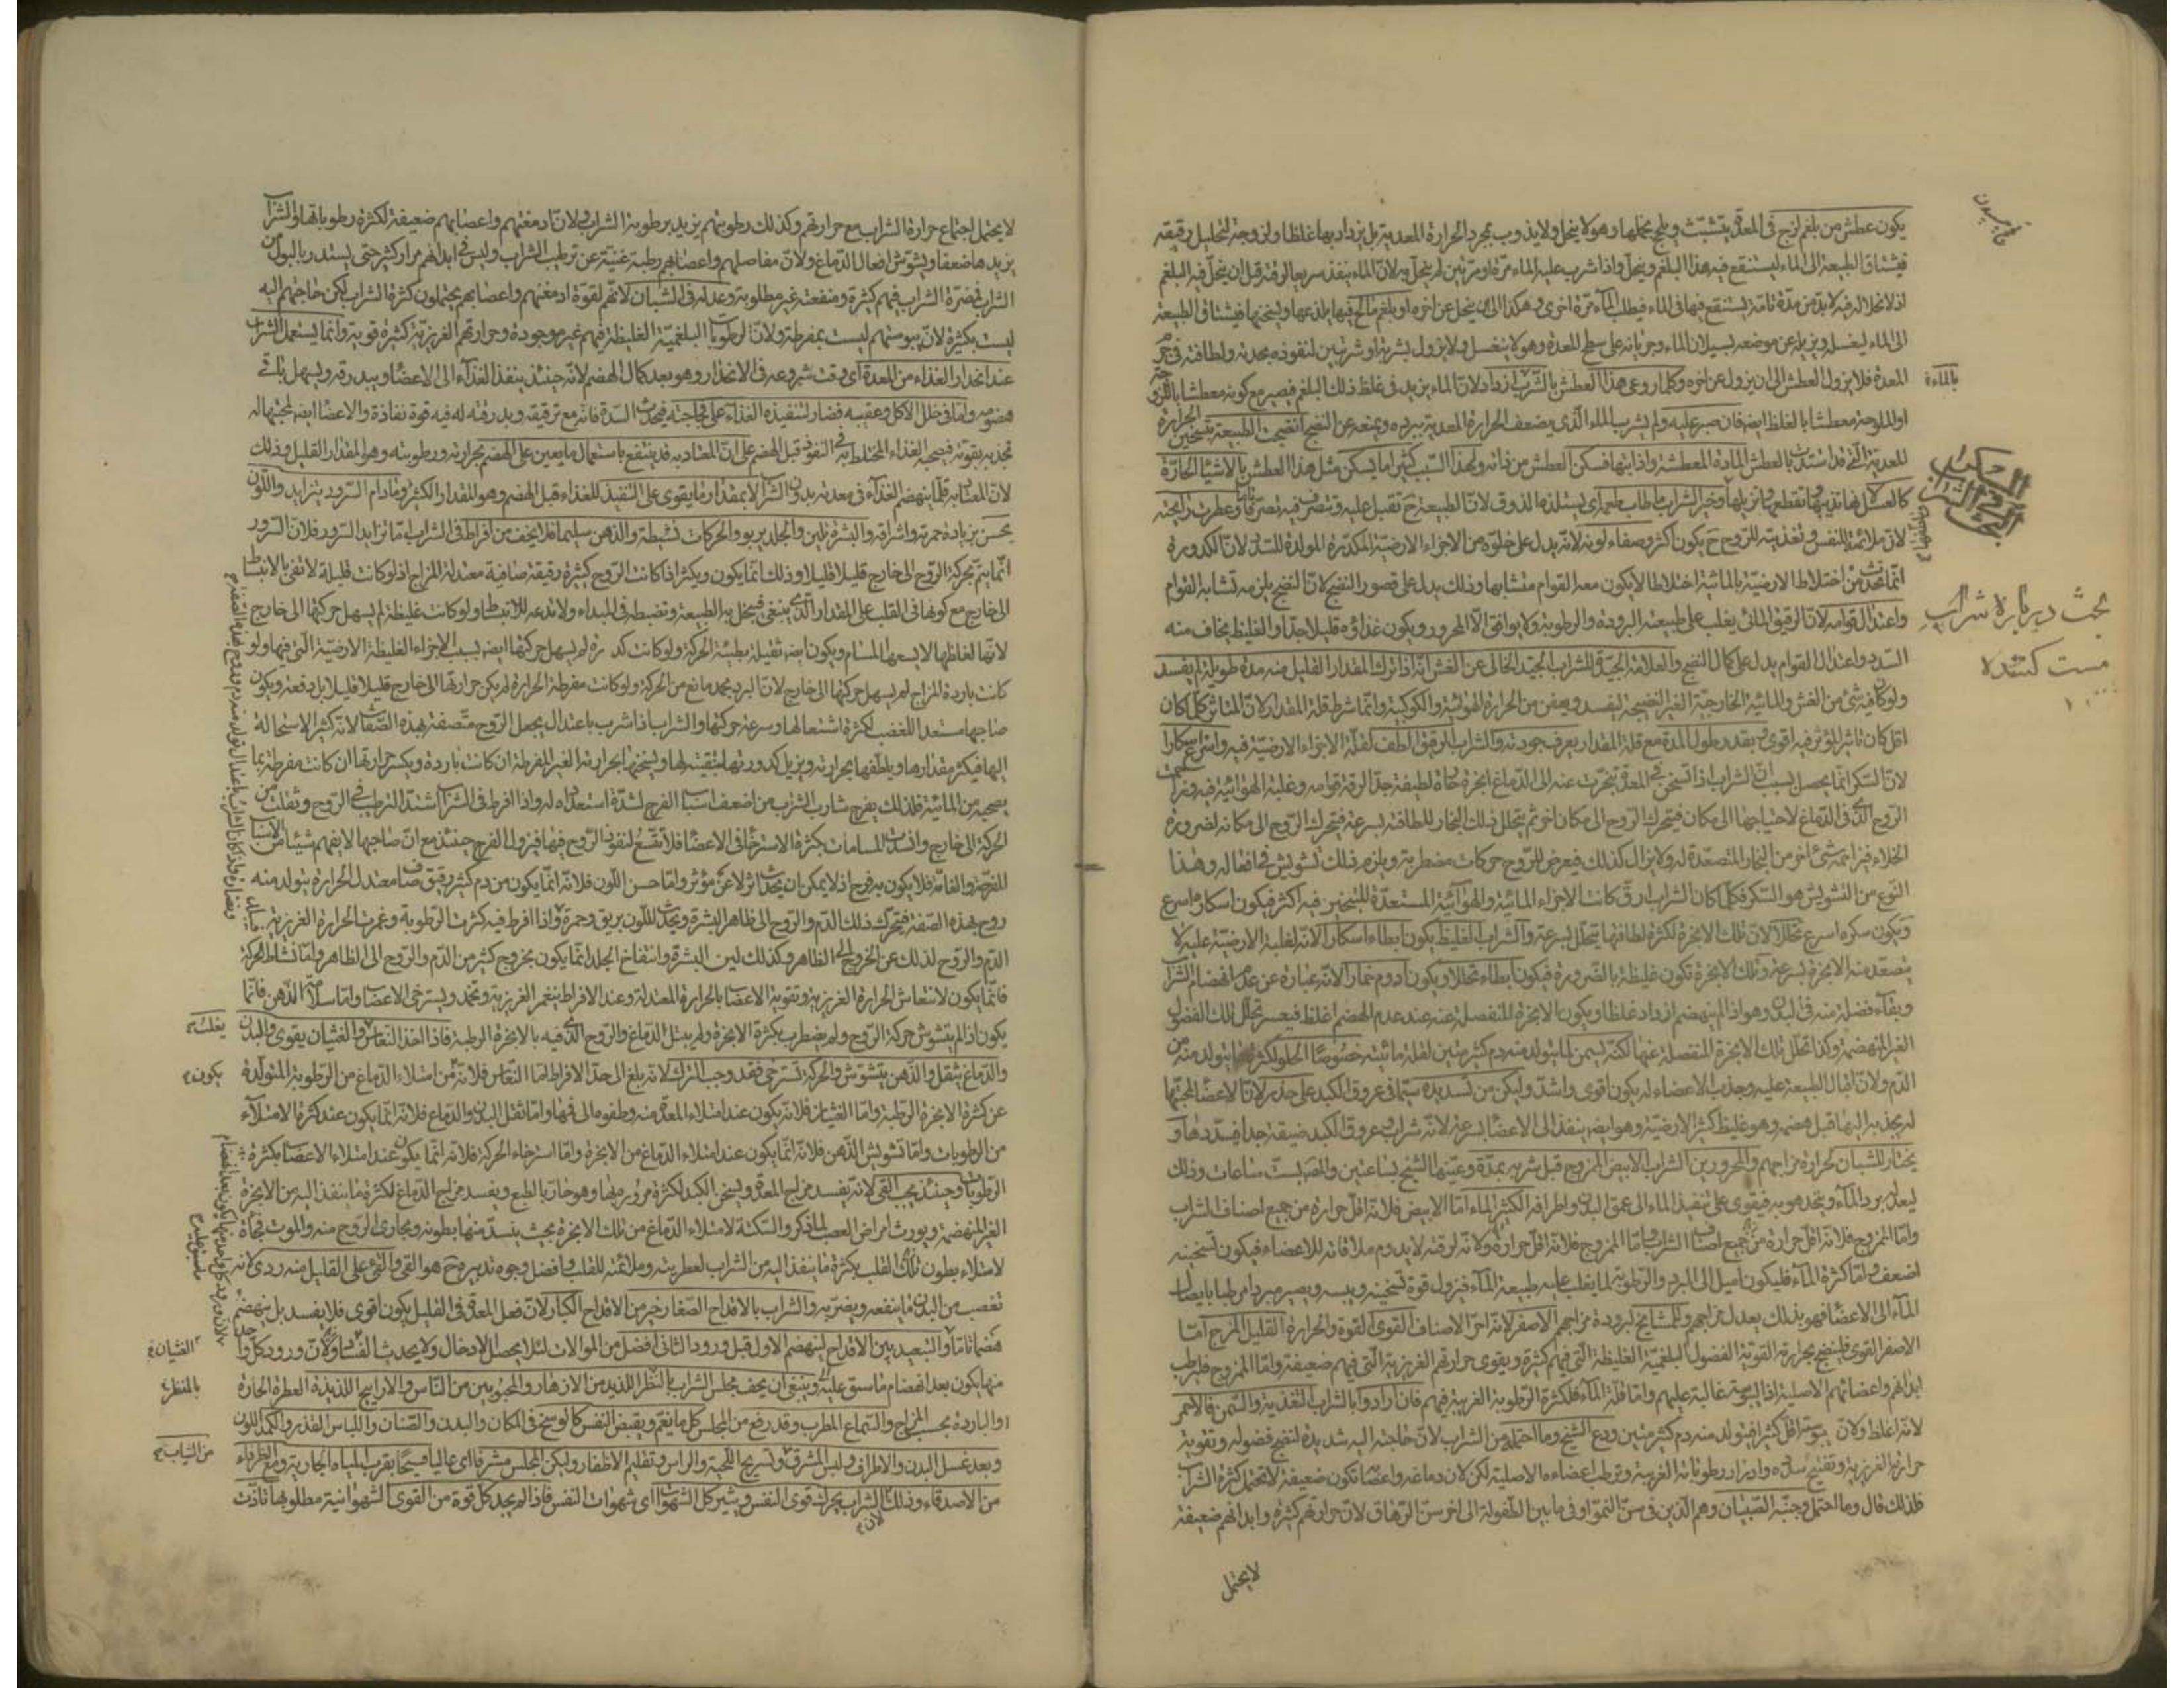 يكون عطش من بلغم لزج فى المعدة يتشبث ويلحج بخملها وهو لا ينحل ولا يذوب بمجرد الحرارة المعدية بل يزداد بها غلظا ولزوجة لتحليل رقيقه
فيشتاق الطبيعة الى الماء ليستنقع فيه هذا البلغم وينحل واذا شرب عليه الماء مرة او مرتين لم ينحل به لان الماء ينفذ سريعا لرقته قبل ان ينحل فيه البلغم
اذ لانحلاله فيه لابد من مدة تامة يستنقع فيها فى الماء فيطلب الماء مرة اخرى وهكذا الى ان ينحل عن اخره او بلغم مالح فيها يلذعها ويسخنها فيشتاق الطبيعة
الى الماء ليغسله ويزيله عن موضعه بسيلان الماء وجريانه على سطح المعدة وهو لا ينغسل ولا يزول بشربة او شربتين لنفوذه بحدته ولطافته فى جرم
المعدة فلا يزول العطش الى ان يزول عن اخره وكلما روعى هذا العطش بالشرب ازداد لان الماء يزيد فى غلظ ذلك البلغم فيصير مع كونه معطشا باللزوجة
او الملوحة معطشا بالغلظ ايضا فان صبر عليه ولم يشرب الماء الذى يضعف الحرارة المعدية ببرده ويمنعه عن النضج انضجت الطبيعة بتسخين الحرارة
للمعدية التى قد اشتدت بالعطش المادة المعطشة واذابتها فسكن العطش من ذاته ولهذا السبب كثيرا ما يسكن مثل هذا العطش بالاشياء الحارة
كالعسل لانها تذيبها وتقطعها وتزيلها وخير الشراب ما طاب طعمه اى يستلذه الذوق لان الطبيعة ح تقبل عليه وتتصرف فيه تصرفا تاما وعطرت رائحته
لان ملائمة للنفس وتغذيته للروح ح يكون اكثر وصفاء لونه لانه يدل على خلوه من الاجزاء الارضية المكدرة المولدة للسدد لان الكدورة
انما تحدث من اختلاط الارضية بالمائية اختلاطا لا يكون معه القوام متشابها وذلك يدل على قصور النضج لان النضج يلزمه تشابه القوام
واعتدال قوامه لان الرقيق المائى يغلب على طبيعته البرودة والرطوبة ولا يوافق الا المحرور ويكون غذاؤه قليلا جدا والغليظ يخاف منه
السدد واعتدال القوام يدل على كمال النضج والعلامة الجيدة للشراب الجيد الخالى عن الغش انه اذا ترك المقدار القليل منه مدة طويلة لم يفسد
ولو كان فيه شئ من الغش والمائية الخارجية الغير النضيجة ليفسد ويعفن من الحرارة الهوائية والكوكبية وانما شرط قلة المقدار لان المتأثر كلما كان
اقل كان تأثير المؤثر فيه اقوى وبقدر طول المدة مع قلة المقدار يعرف جودته والشراب الرقيق الطف لقلة الاجزاء الارضية فيه واسرع اسكارا
لان السكر انما يحصل بسبب ان الشراب اذا تسخن فى المعدة تبخرت عنه الى الدماغ ابخرة حارة لطيفة جدا لرقة قوامه وغلبة الهوائية فيه
الروح الذى فى الدماغ لاحتياجها الى مكان فيتحرك الروح الى مكان اخر ثم يتحلل ذلك البخار للطافته بسرعة فيتحرك الروح الى مكانه لضرورة
الخلاء فيزاحمه شئ اخر من البخار المتصعدة له ولا يزال كذلك فيعرض للروح حركات مضطربة ويلزم ذلك تشويش فى افعاله وهذا
النوع من التشويش هو السكر فكلما كان الشراب ارق كانت الاجزاء المائية والهوائية المستعدة للتبخير فيه اكثر فيكون اسكاره اسرع
ويكون سكره اسرع تحللا لان تلك الابخرة لكثرة لطافتها يتحلل بسرعة والشراب الغليظ يكون ابطاء اسكارا لانه لغلبة الارضية عليه لا
يتصعد منه الابخرة بسرعة وتلك الابخرة تكون غليظة بالضرورة فيكون ابطاء تحللا ويكون ادوم خمارا لانه عبارة عن عدم انهضام الشراب
وبقاء فضلة منه فى البدن وهو اذا لم ينهضم ازداد غلظا ويكون الابخرة المنفصلة عنه عند عدم الهضم اغلظ فيعسر تحلل تلك الفضول
الغير المنهضمة وكذا تحلل تلك الابخرة المنفصلة عنها لكنه يسمن لما يتولد منه دم كثير متين لقلة مائيته خصوصا الحلو لكثرة ما يتولد منه من
الدم ولان اقبال الطبيعة عليه وجذب الاعضاء له يكون اقوى واشد وليكن من تسديده سيما فى عروق الكبد على حذر لان الاعضاء لمحبتها
له يجذبه اليها قبل هضمه وهو غليظ كثير الارضية وهو ايضا ينفذ الى الاعضاء بسرعة لانه شراب وعروق الكبد ضيقة جدا فيسددها و
يختار للشبان لحرارة مزاجهم والمحرورين الشراب الابيض الممزوج قبل شربه بمدة وعينها الشيخ بساعتين والصبست ساعات وذلك
ليعدل برد الماء ويتحد هو به فيقوى على تنفيذ الماء الى عمق البدن واطرافه الكثير الماء اما الابيض فلانه اقل حرارة من جميع اصناف الشراب
واما الممزوج فلانه اقل حرارة ولانه لرقته لا يدوم ملاقاته للاعضاء فيكون تسخينه
اضعف واما كثرة الماء فليكون اميل الى البرد والرطوبة لما يغلب عليه طبيعة الماء فيزول قوة تسخينه ويبسه ويصير مبردا مرطبا بايصال
الماء الى الاعضاء فهو بذلك يعدل مزاجهم وللمشايخ لبرودة مزاجهم الاصفر لانه احر الاصناف القوى القوة والحرارة القليل المزج اما
الاصفر القوى فلينضج بحرارته القوية الفضول البلغمية الغليظة التى فيهم كثيرة ويقوى حرارتهم الغريزية التى فيهم ضعيفة واما الممزوج فليرطب
ابدانهم واعضائهم الاصلية اذ اليبوسة غالبة عليهم واما قلة الماء فلكثرة الرطوبة الغريبة فيهم فان ارادوا بالشراب التغذية والسمن فالاحمر
لانه اغلظ ولان يبوسته اقل كثيرا فيتولد منه دم كثير متين ودع الشيخ وما احتمله من الشراب لان حاجته اليه شديدة لنضج فضوله وتقوية
حرارته الغريزية وتفتيح سدده وادرار رطوباته الغريبة وترطيب اعضاءه الاصلية لكن لان دماغه واعضاءه تكون ضعيفة لا تحتمل كثرة الشراب
فلذلك قال وما احتمل وجنبه الصبيان وهم الذين فى سن النمو او فى ما بين الطفولة الى اخر سن الرهاق لان حرارتهم كثيرة وابدانهم ضعيفة
لا يحتمل
بحث درباره شراب
مست كننده
لا يحتمل اجتماع حرارة الشراب مع حرارتهم وكذلك رطوبتهم يزيد برطوبة الشراب ولان ادمغتهم واعصابهم ضعيفة لكثرة رطوباتها والشراب
يزيدها ضعفا ويشوش افعال الدماغ ولان مفاصلهم واعضاءهم رطبة غنية عن ترطيب الشراب وليس فى ابدانهم مرار كثير حتى يستدر بالبول من
الشراب فمضرة الشراب فيهم كثيرة ومنفعته غير مطلوبة وعدله فى الشبان لانهم لقوة ادمغتهم واعصابهم يحتملون كثرة الشراب لكن حاجتهم اليه
ليست بكثيرة لان يبوستهم ليست بمفرطة ولان الرطوبات البلغمية الغليظة فيهم غير موجودة وحرارتهم الغريزية كثيرة قوية وانما يستعمل الشراب
عند انحدار الغذاء من المعدة اى وقت شروعه فى الانحدار وهو بعد كمال الهضم لانه حينئذ ينفذ الغذاء الى الاعضاء ويبدرقه ويسهل باقى
هضومه واما فى خلل الاكل وعقيبه فضار لتنفيذه الغذاء على فجاجته فيحدث السدة فانه مع ترقيقه وبدرقته له فيه قوة نفاذة والاعضاء ايضا لمحبتها له
تجذبه بقوة فيصحبه الغذاء المختلط به فى النفوذ قبل الهضم على ان المعتاد به قد ينتفع باستعمال ما يعين على الهضم بحرارته ورطوبته وهو المقدار القليل وذلك
لان المعتاد به قلما ينهضم الغذاء فى معدته بدون الشراب لا بمقدار ما يقوى على التنفيذ للغذاء قبل الهضم وهو المقدار الكثير وما دام السرور يتزايد واللون
يحسن بزيادة حمرته واشراقه والبشرة تلين والجلد يربو والحركات نشيطة والذهن سليما فلا يخف من افراط فى الشراب اما تزايد السرور فلان السرور
انما يتم بحركة الروح الى خارج قليلا قليلا وذلك انما يكون ويكثر اذا كانت الروح كثيرة رقيقة صافية معتدلة المزاج اذ لو كانت قليلة لا تفى بالانبساط
الى خارج مع كونها فى القلب على المقدار الذى ينبغى فيبخل به الطبيعة وتضبطه فى المبداء ولا تدعه للانبساط ولو كانت غليظة لم يسهل حركتها الى خارج
لانها لغلظها لا يسعها المسام ويكون ايضا ثقيلة بطيئة الحركة ولو كانت كدرة لم يسهل حركتها ايضا بسبب الاجزاء الغليظة الارضية التى فيها ولو
كانت باردة المزاج لم يسهل حركتها الى خارج لان البرد مجمد مانع من الحركة ولو كانت مفرطة الحرارة لم يكن حركتها الى خارج قليلا قليلا بل دفعة ويكون
صاحبها مستعدا للغضب لكثرة اشتعالها وسرعة حركتها والشراب اذا شرب باعتدال يجعل الروح متصفة بهذه الصفات لانه كثير الاستحالة
اليها فيكثر مقدارها ويلطفها بحرارته ويزيل كدورتها بتنقيته لها ويسخنها بحرارته الغير المفرطة ان كانت باردة ويكسر حرارتها ان كانت مفرطة بما
يصحبه من المائية فلذلك يفرح شارب الشراب من اضعف اسباب الفرح لشدة استعداده له واذا افرط فى الشراب اشتد الترطيب فى الروح وثقلت من
الحركة الى خارج وانسدت المسامات بكثرة الاسترخاء فى الاعضاء فلا تتسع لنفوذ الروح فيها فيزول الفرح حينئذ مع ان صاحبها لا يفهم شيئا من الاسباب
المفرحة والغامة فلا يكون به فرح اذ لا يمكن ان يحدث اثر لا عن مؤثر واما حسن اللون فلانه انما يكون من دم كثير رقيق صاف معتدل الحرارة يتولد منه
روح بهذه الصفة فيتحرك ذلك الدم والروح الى ظاهر البشرة ويحدث للون بريق وحمرة واذا افرط فيه كثرت الرطوبة وغمرت الحرارة الغريزية
الدم والروح لذلك عن الخروج الى الظاهر وكذلك لين البشرة وانتفاخ الجلد انما يكون بخروج كثير من الدم والروح الى الظاهر واما نشاط الحركة
فانما يكون لانتعاش الحرارة الغريزية وتقوية الاعضاء بالحرارة المعتدلة وعند الافراط ينغمر الغريزية وتخمد ويسترخى الاعضاء واما سلامة الذهن فانما
يكون اذا لم يتشوش حركة الروح ولم يضطرب بكثرة الابخرة ولم يبتل الدماغ والروح الذى فيه بالابخرة الرطبة فاذا اخذ النعاس والغشيان يقوى والبدن
والدماغ يثقل والذهن يتشوش والحركة تسترخى فقد وجب الترك لانه بلغ الى حد الافراط اما النعاس فلانه من امتلاء الدماغ من الرطوبة المتولدة
عن كثرة الابخرة الرطبة واما الغشيان فلانه يكون عند امتلاء المعدة منه وطفوه الى فمها واما ثقل البدن والدماغ فلانه انما يكون عند كثرة الامتلاء
من الرطوبات واما تشويش الذهن فلانه انما يكون عند امتلاء الدماغ من الابخرة واما استرخاء الحركة فلانه انما يكون عند امتلاء الاعضاء بكثرة
الرطوبات وحينئذ يجب القى لانه يفسد مزاج المعدة ويسخن الكبد لكثرة مروره بها وهو حار بالطبع ويفسد مزاج الدماغ لكثرة ما ينفذ اليه من الابخرة
الغير المنهضمة ويورث امراض العصب لما ذكر والسكتة لامتلاء الدماغ من تلك الابخرة بحيث ينسد منها بطونه ومجارى الروح منه والموت فجأة
لامتلاء بطون القلب بكثرة ما ينفذ اليه من الشراب لعطريته وملائمته للقلب فافضل وجوه تدبيره ح هو القى والقى على القليل منه ردى لانه
تغصب من البدن ما ينفعه ويضر به والشراب بالاقداح الصغار خير من الاقداح الكبار لان فعل المعدة فى القليل يكون اقوى فلا يفسد بل ينهضم
هضما تاما والتبعيد بين الاقداح لينهضم الاول قبل ورود الثانى افضل من الموالات لئلا يحصل الادخال ولا يحدث الفساد ولان ورود كل واحد
منها يكون بعد انهضام ما سبق عليه وينبغى ان يحف مجلس الشراب بالنظر اللذيذ من الازهار والمحبوبين من الناس والارايح اللذيذة العطرة الحارة
او الباردة بحسب المزاج والسماع المطرب وقد رفع من المجلس كل ما يغم ويقبض النفس كالوسخ فى المكان والبدن والصنان واللباس القذر والكمد اللون
وبعد غسل البدن والاطراف ولبس المشرق وتسريح اللحية والراس وتقليم الاظفار وليكن المجلس مشرفا اى عاليا فسيحا بقرب المياه الجارية ومع الظرفاء
من الاصدقاء وذلك لان الشراب يحرك قوى النفس ويثير كل الشهوات اى شهوات النفس فاذا لم يجد كل قوة من القوى الشهوانية مطلوبها تأذت
يغلب
يكون
الغشيان
بالمنظر
من الثياب